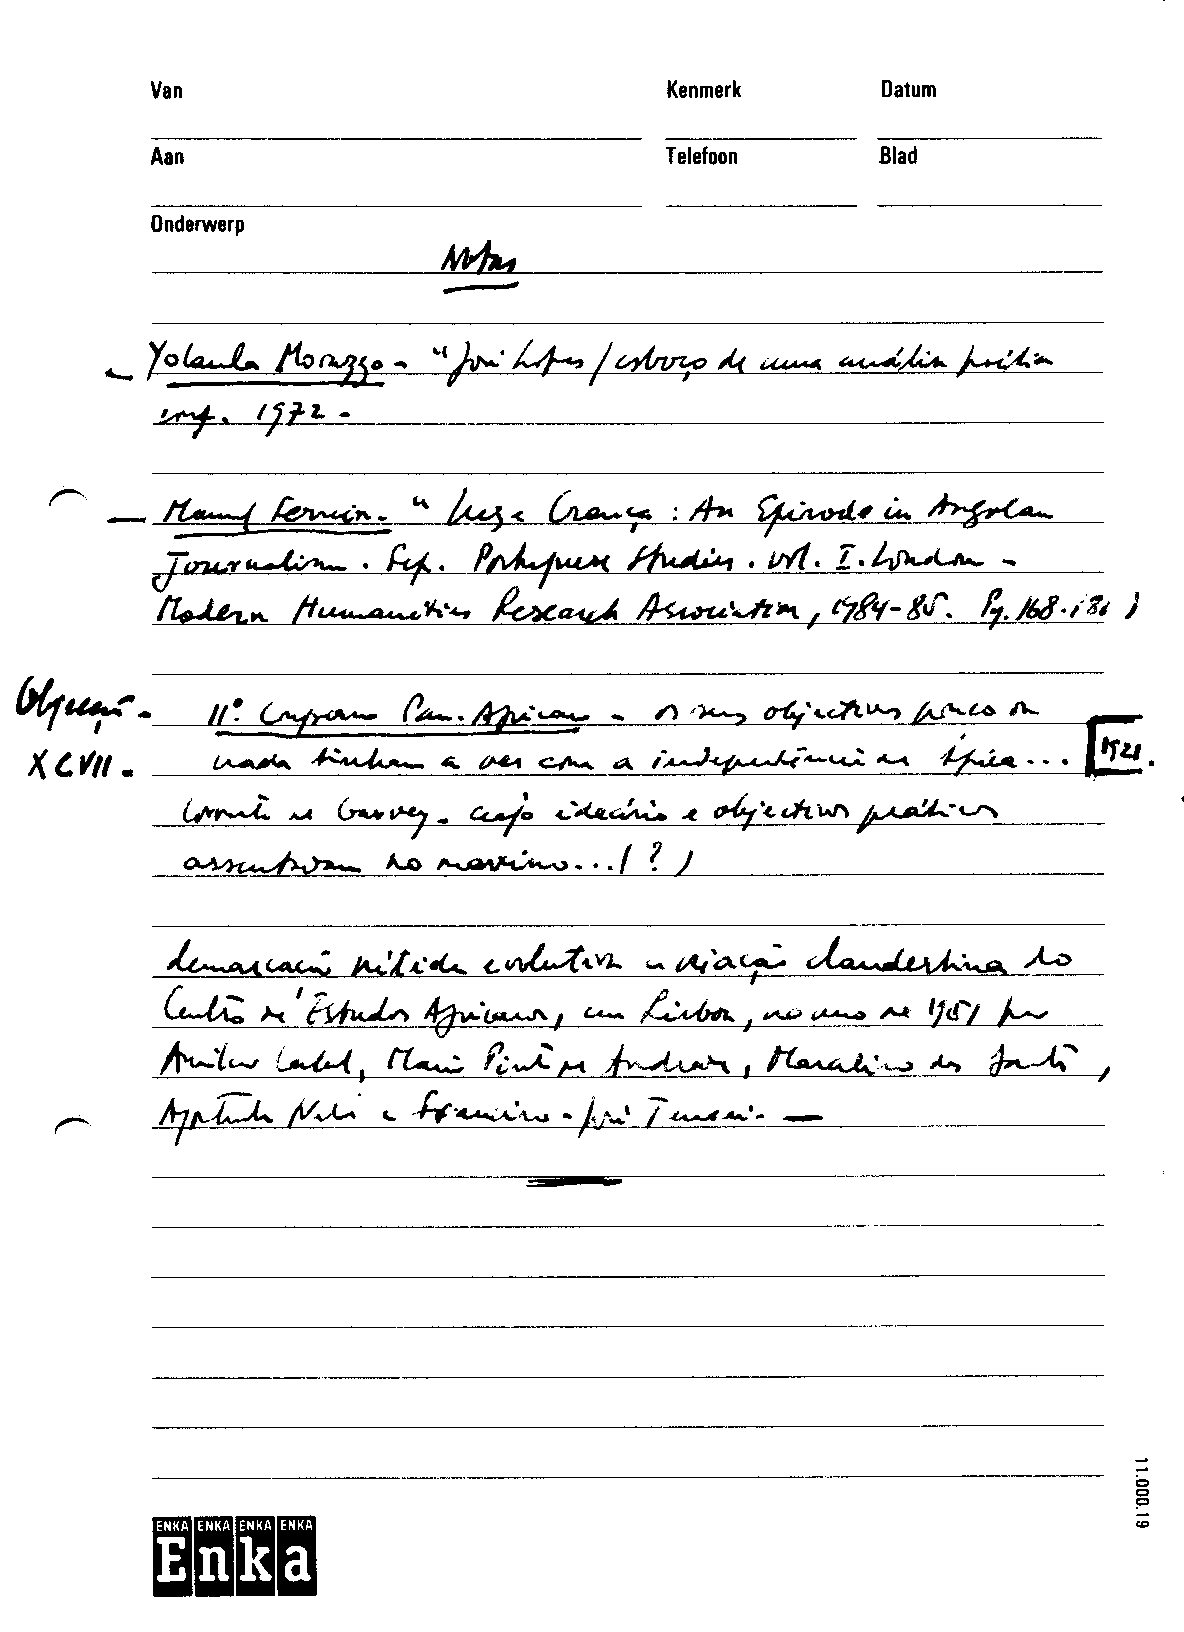 Van Kenmerk Datum
Aan Telefoon Blad
Onderwerp
Notas
- Yolanda Morazzo - "José Lopes / esboço de uma análise poética
1972 -
- Manuel Ferreira - " Negra Crença : An Episode in Angolan
Journalism. Sep. Portuguese Studies. vol. I. London -
Modern Humanities Research Association, 1984-85. Pg. 168-181 )
Objecção - II° Congresso Pan-Africano - os seus objectivos pouco ou
XCVII - nada tinham a ver com a independência de África... 1921.
de Garvey - cujo ideário e objectivos práticos
assentavam no mesmo... ( ? )
demarcação nítida evolutiva criação clandestina do
Centro de Estudos Africanos, em Lisboa, no ano de 1951 por
Amílcar Cabral, Mário Pinto de Andrade, Marcelino dos Santos,
Agostinho Neto e Francisco-José Tenreiro. —
11.000.19
ENKA ENKA ENKA ENKA
Enka